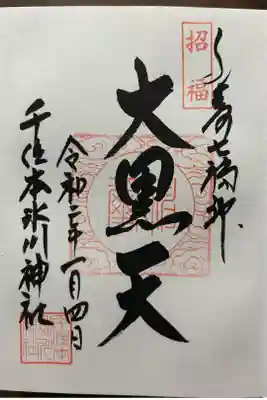 招福
千寿七福神
大黒天
令和二年一月四日
千住本氷川神社